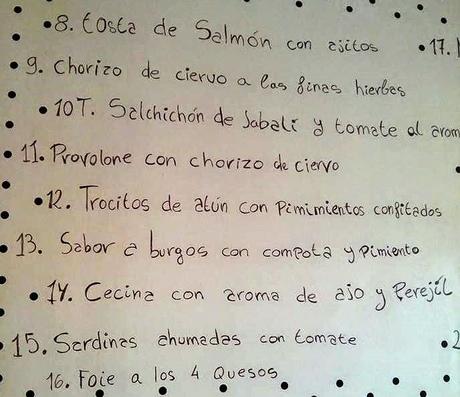 8. Tosta de Salmón con ajitos
17.
9. Chorizo de ciervo a las finas hierbas
10T. Salchichón de Jabalí y tomate al arom
11. Provolone con chorizo de ciervo
12. Trocitos de atún con Pimimientos confitados
13. Sabor a burgos con compota y Pimiento
14. Cecina con aroma de ajo y Perejíl
15. Sardinas ahumadas con tomate
2
16. Foie a los 4 Quesos